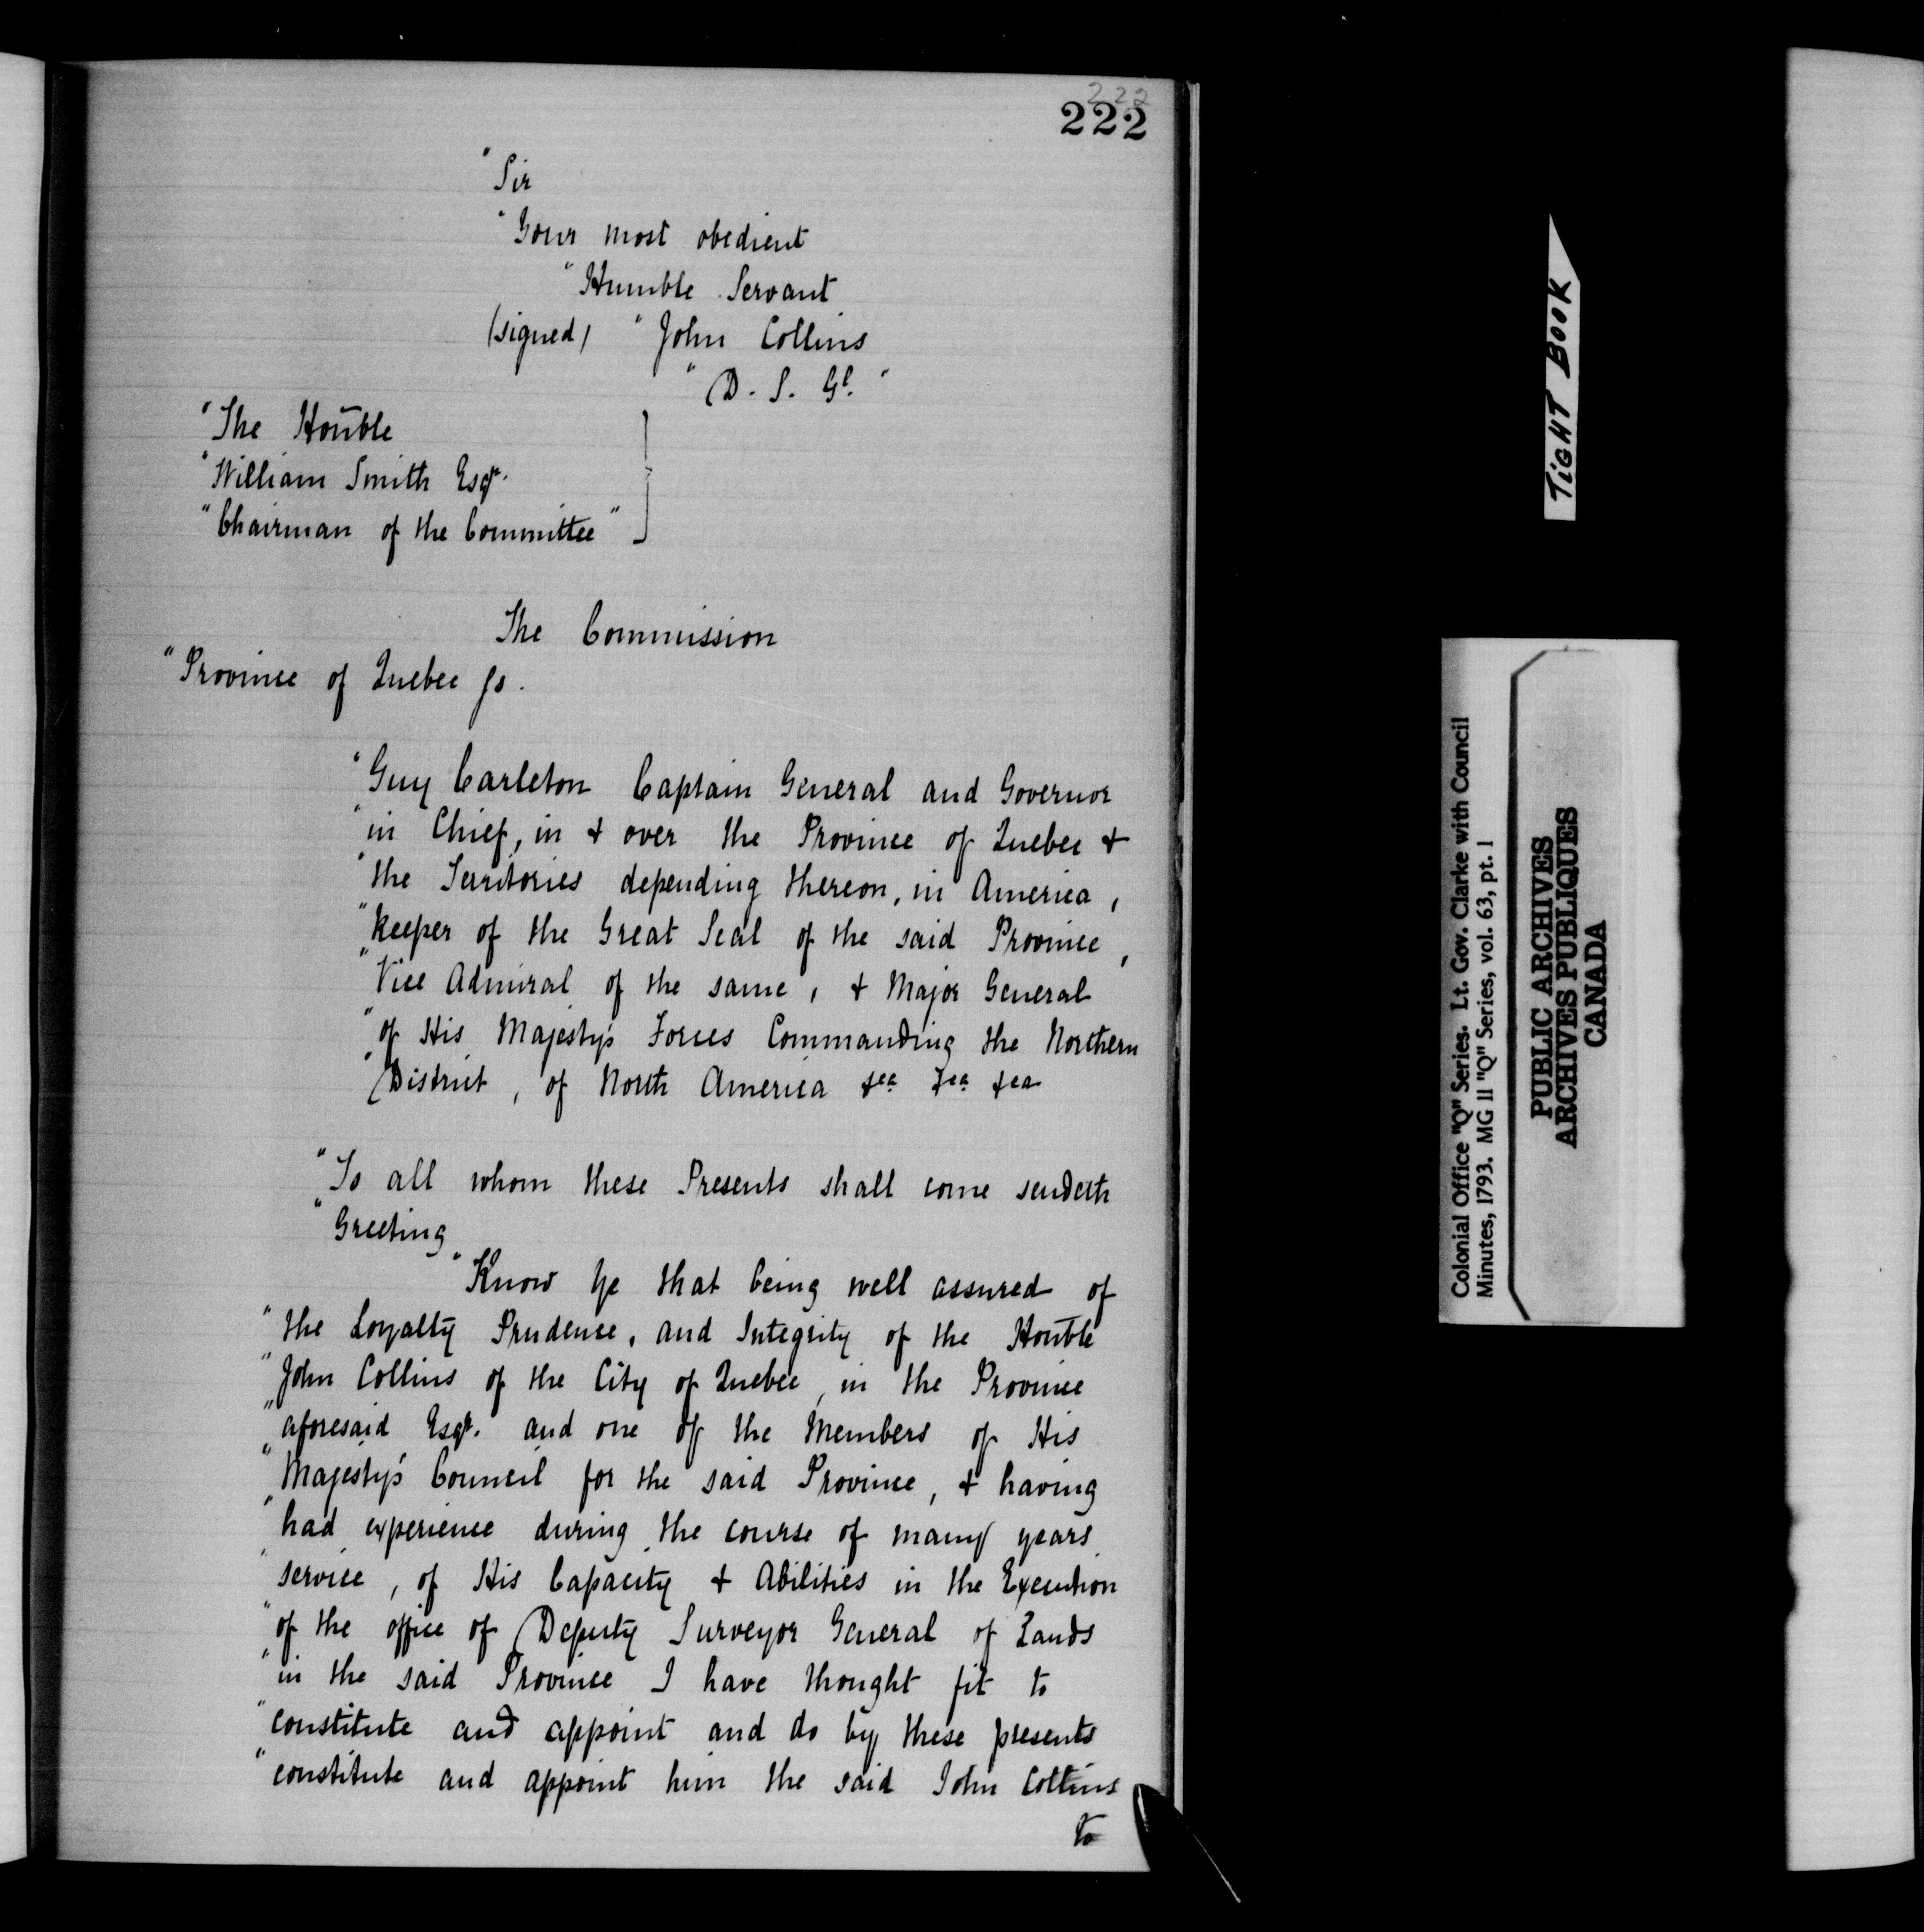 222
222
"Sir
"Your most obedient
"Humble Servant
(signed) "John Collins
"D. S. Gl."
"The Honble
"William Smith Esqr.
"Chairman of the Committee"
The Commission
"Province of Quebec ss.
"Guy Carleton Captain General and Governor
"in Chief, in & over the Province of Quebec &
"the Territories depending thereon, in America,
"Keeper of the Great Seal of the said Province,
"Vice Admiral of the same, & Major General
"of His Majesty's Forces Commanding the Northern
"District, of North America &ca &ca &ca
"To all whom these Presents shall come sendeth
"Greeting
"Know Ye that being well assured of
"the Loyalty Prudence, and Integrity of the Honble
"John Collins of the City of Quebec, in the Province
"aforesaid Esqr. and one of the Members of His
"Majesty's Council for the said Province, & having
"had experience during the course of many years
"service, of His Capacity & Abilities in the Execution
"of the office of Deputy Surveyor General of Lands
"in the said Province I have thought fit to
"constitute and appoint and do by these presents
"constitute and appoint him the said John Collins
to
TIGHT BOOK
Colonial Office "Q" Series. Lt. Gov. Clarke with Council
Minutes, 1793. MG 11 "Q" Series, vol. 63, pt. 1
PUBLIC ARCHIVES
ARCHIVES PUBLIQUES
CANADA